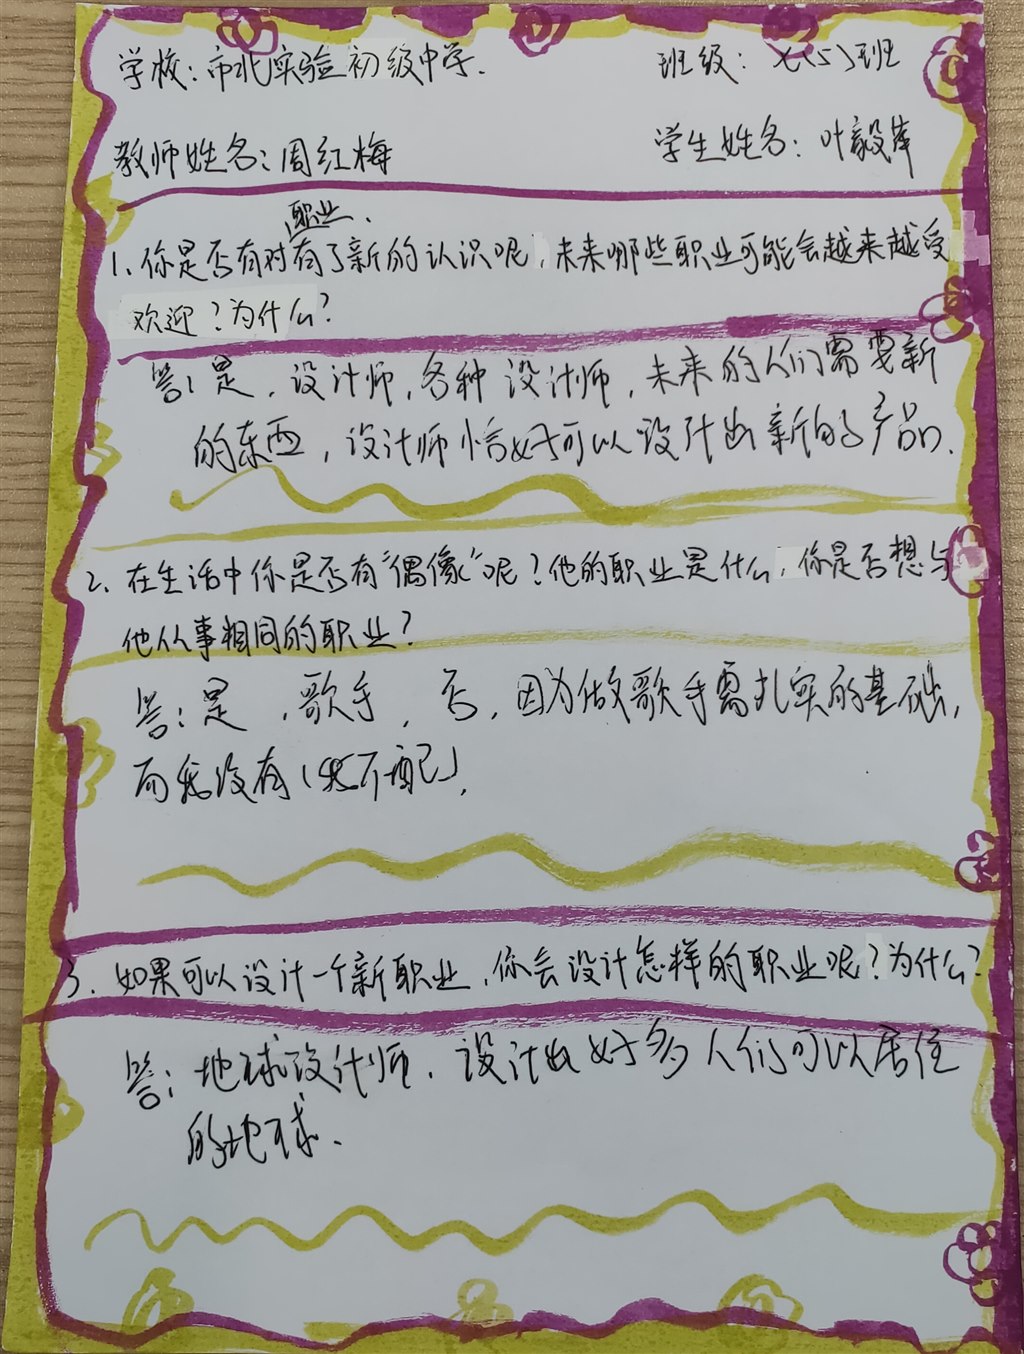 学校：市北实验初级中学.
班级：七(5)班
教师姓名：周红梅
学生姓名：叶毅
职业、
1、你是否有对有了新的认识呢，未来哪些职业可能会越来越受
欢迎？为什么？
答：是，设计师，各种设计师，未来的人们需要新
的东西，设计师恰好可以设计出新的产品.
2、在生活中你是否有“偶像”呢？他的职业是什么，你是否想与
他从事相同的职业？
答：是，歌手，否，因为做歌手需扎实的基础，
而我没有(我不配)，
3、如果可以设计一个新职业，你会设计怎样的职业呢？为什么？
答：地球设计师，设计出好多人们可以居住
的地球、